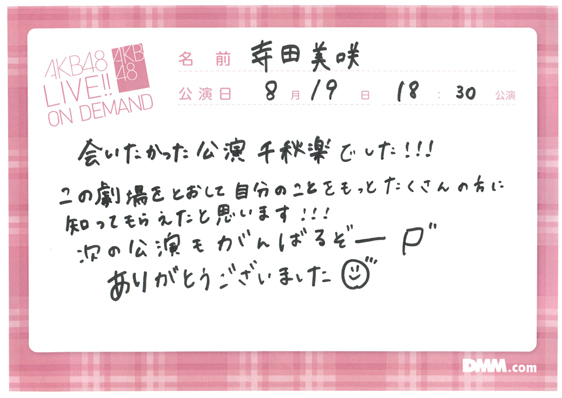 AKB48
LIVE!!
ON DEMAND
AKB
48
名前 寺田美咲
公演日 8月19日 18:30公演
会いたかった公演千秋楽でした!!!
この劇場をとおして自分のことをもっとたくさんの方に
知ってもらえたと思います!!!
次の公演もがんばるぞー
ありがとうございました
DMM.com